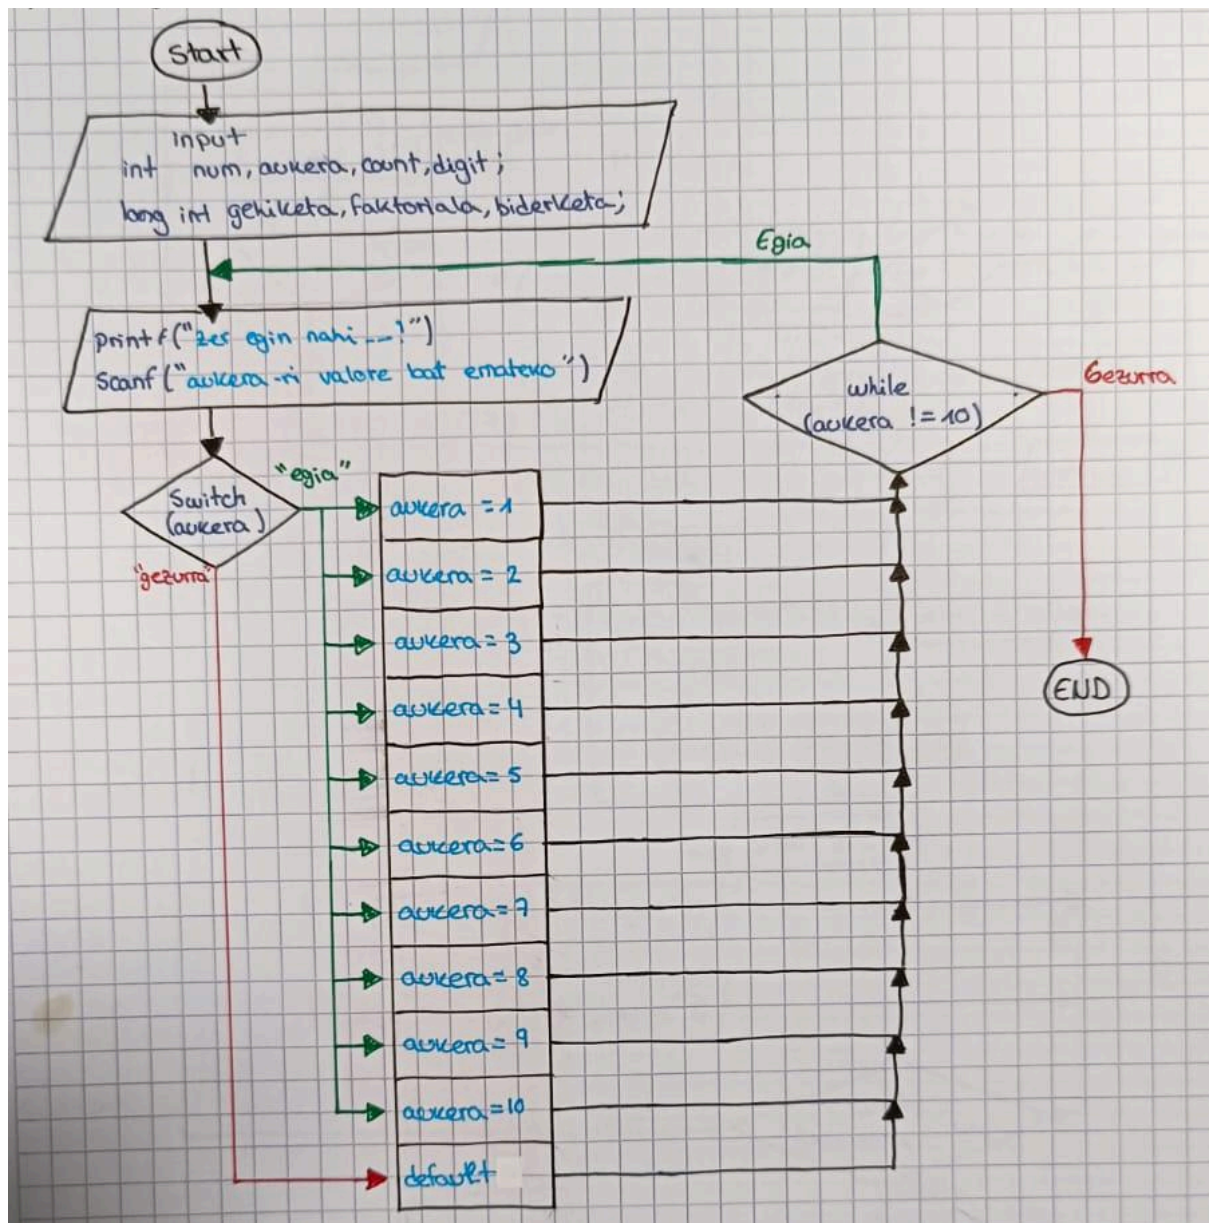 Start
input
int num, aukera, count, digit;
long int gehiketa, faktoriala, biderketa;
Egia
printf("zer egin nahi---!")
Scanf("aukera-ri valore bat emateko")
while
(aukera != 10)
Gezurra
Switch
(aukera)
"egia"
"gezurra"
aukera = 1
aukera = 2
aukera = 3
aukera = 4
aukera = 5
aukera = 6
aukera = 7
aukera = 8
aukera = 9
aukera = 10
default
END